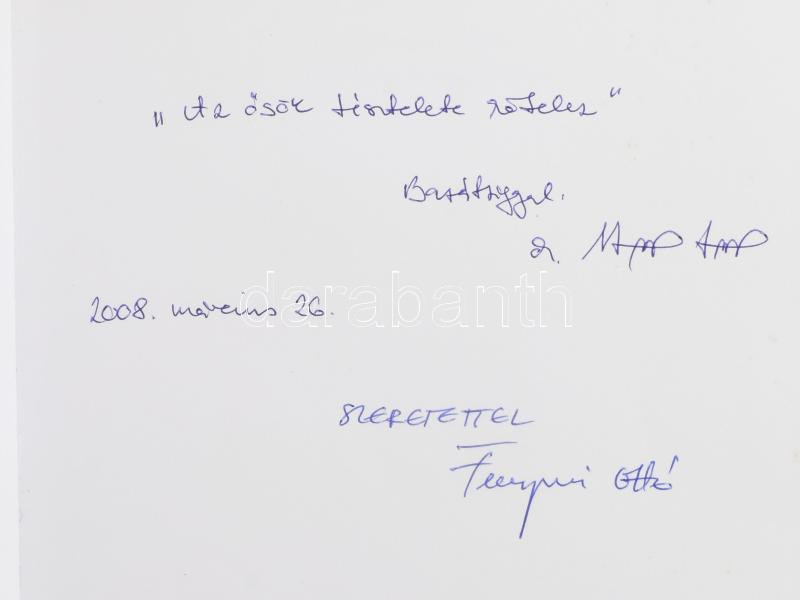 „Az ősök tisztelete kötelez"
Barátsággal.
dr.
2008. március 26.
darabanth
SZERETETTEL
Ottó